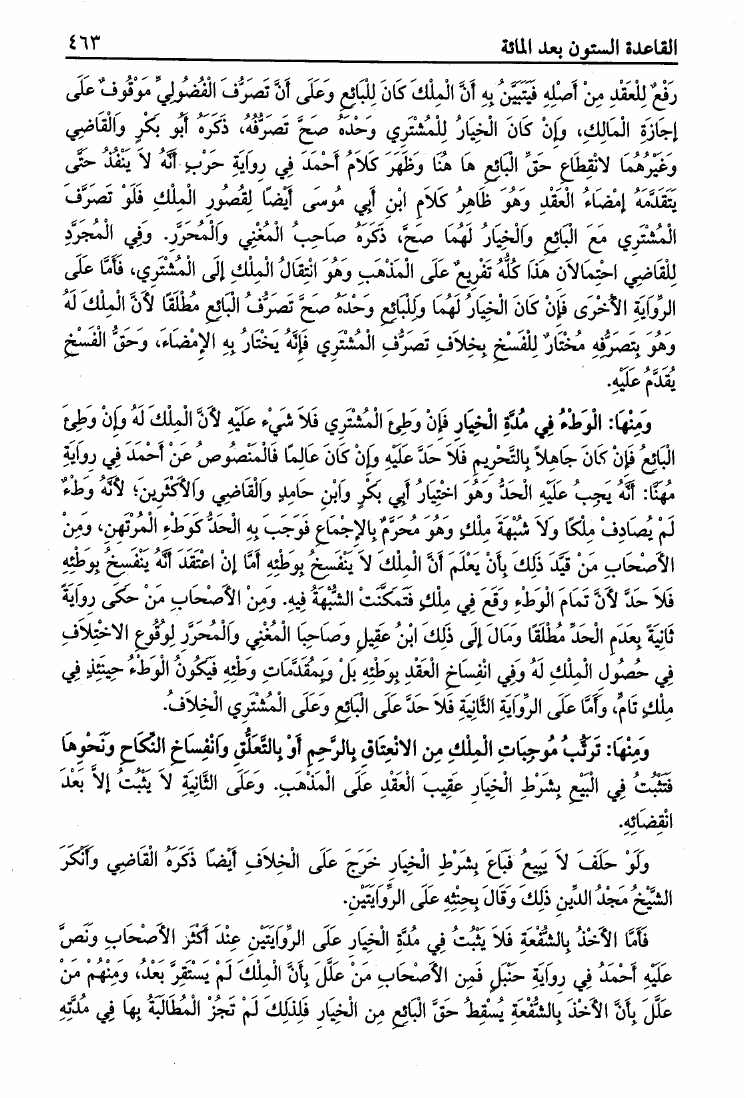 القاعدة الستون بعد المائة ٤٦٣
رَفْعٌ لِلْعَقْدِ مِنْ أَصْلِهِ فَيَتَبَيَّنُ بِهِ أَنَّ الْمِلْكَ كَانَ لِلْبَائِعِ وَعَلَى أَنَّ تَصَرُّفَ الْفُضُولِيِّ مَوْقُوفٌ عَلَى
إجَازَةِ الْمَالِكِ، وَإِنْ كَانَ الْخِيَارُ لِلْمُشْتَرِي وَحْدَهُ صَحَّ تَصَرُّفُهُ، ذَكَرَهُ أَبُو بَكْرٍ وَالْقَاضِي
وَغَيْرُهُمَا لانْقِطَاعِ حَقِّ الْبَائِعِ هَا هُنَا وَظَهَرَ كَلَامُ أَحْمَدَ فِي رِوَايَةِ حَرْبٍ أَنَّهُ لَا يَنْفُذُ حَتَّى
يَتَقَدَّمَهُ إمْضَاءُ الْعَقْدِ وَهُوَ ظَاهِرُ كَلَامِ ابْنِ أَبِي مُوسَى أَيْضًا لِقُصُورِ الْمِلْكِ فَلَوْ تَصَرَّفَ
الْمُشْتَرِي مَعَ الْبَائِعِ وَالْخِيَارُ لَهُمَا صَحَّ، ذَكَرَهُ صَاحِبُ الْمُغْنِي وَالْمُحَرَّرِ. وَفِي الْمُجَرَّدِ
لِلْقَاضِي احْتِمَالَانِ هَذَا كُلُّهُ تَفْرِيعٌ عَلَى الْمَذْهَبِ وَهُوَ انْتِقَالُ الْمِلْكِ إلَى الْمُشْتَرِي، فَأَمَّا عَلَى
الرِّوَايَةِ الْأُخْرَى فَإِنْ كَانَ الْخِيَارُ لَهُمَا وَلِلْبَائِعِ وَحْدَهُ صَحَّ تَصَرُّفُ الْبَائِعِ مُطْلَقًا لأَنَّ الْمِلْكَ لَهُ
وَهُوَ بِتَصَرُّفِهِ مُخْتَارٌ لِلْفَسْخِ بِخِلَافِ تَصَرُّفِ الْمُشْتَرِي فَإِنَّهُ يَخْتَارُ بِهِ الإِمْضَاءَ، وَحَقُّ الْفَسْخِ
يُقَدَّمُ عَلَيْهِ.
وَمِنْهَا: الْوَطْءُ فِي مُدَّةِ الْخِيَارِ فَإِنْ وَطِئَ الْمُشْتَرِي فَلَا شَيْءَ عَلَيْهِ لأَنَّ الْمِلْكَ لَهُ وَإِنْ وَطِئَ
الْبَائِعُ فَإِنْ كَانَ جَاهِلاً بِالتَّحْرِيمِ فَلَا حَدَّ عَلَيْهِ وَإِنْ كَانَ عَالِمًا فَالْمَنْصُوصُ عَنْ أَحْمَدَ فِي رِوَايَةِ
مُهَنَّا: أَنَّهُ يَجِبُ عَلَيْهِ الْحَدُّ وَهُوَ اخْتِيَارُ أَبِي بَكْرٍ وَابْنِ حَامِدٍ وَالْقَاضِي وَالأَكْثَرِينَ؛ لأَنَّهُ وَطْءٌ
لَمْ يُصَادِفْ مِلْكًا وَلاَ شُبْهَةَ مِلْكٍ وَهُوَ مُحَرَّمٌ بِالإِجْمَاعِ فَوَجَبَ بِهِ الْحَدُّ كَوَطْءِ الْمُرْتَهِنِ، وَمِنْ
الأَصْحَابِ مَنْ قَيَّدَ ذَلِكَ بِأَنْ يَعْلَمَ أَنَّ الْمِلْكَ لاَ يَنْفَسِخُ بِوَطْئِهِ أَمَّا إنْ اعْتَقَدَ أَنَّهُ يَنْفَسِخُ بِوَطْئِهِ
فَلاَ حَدَّ لأَنَّ تَمَامَ الْوَطْءِ وَقَعَ فِي مِلْكٍ فَتَمَكَّنَتْ الشُّبْهَةُ فِيهِ. وَمِنْ الأَصْحَابِ مَنْ حَكَى رِوَايَةً
ثَانِيَةً بِعَدَمِ الْحَدِّ مُطْلَقًا وَمَالَ إلَى ذَلِكَ ابْنُ عَقِيلٍ وَصَاحِبَا الْمُغْنِي وَالْمُحَرَّرِ لِوُقُوعِ الاخْتِلاَفِ
فِي حُصُولِ الْمِلْكِ لَهُ وَفِي انْفِسَاخِ الْعَقْدِ بِوَطْئِهِ بَلْ وَبِمُقَدَّمَاتِ وَطْئِهِ فَيَكُونُ الْوَطْءُ حِينَئِذٍ فِي
مِلْكٍ تَامٍّ، وَأَمَّا عَلَى الرِّوَايَةِ الثَّانِيَةِ فَلاَ حَدَّ عَلَى الْبَائِعِ وَعَلَى الْمُشْتَرِي الْخِلاَفُ.
وَمِنْهَا: تَرَتُّبُ مُوجِبَاتِ الْمِلْكِ مِن الانْعِتَاقِ بِالرَّحِمِ أَوْ بِالتَّعَلُّقِ وَانْفِسَاخِ النِّكَاحِ وَنَحْوِهَا
فَتَثْبُتُ فِي الْبَيْعِ بِشَرْطِ الْخِيَارِ عَقِيبَ الْعَقْدِ عَلَى الْمَذْهَبِ. وَعَلَى الثَّانِيَةِ لاَ يَثْبُتُ إلاَّ بَعْدَ
انْقِضَائِهِ.
وَلَوْ حَلَفَ لاَ يَبِيعُ فَبَاعَ بِشَرْطِ الْخِيَارِ خَرَجَ عَلَى الْخِلاَفِ أَيْضًا ذَكَرَهُ الْقَاضِي وَأَنْكَرَ
الشَّيْخُ مَجْدُ الدِّينِ ذَلِكَ وَقَالَ بِحِنْثِهِ عَلَى الرِّوَايَتَيْنِ.
فَأَمَّا الأَخْذُ بِالشُّفْعَةِ فَلاَ يَثْبُتُ فِي مُدَّةِ الْخِيَارِ عَلَى الرِّوَايَتَيْنِ عِنْدَ أَكْثَرِ الأَصْحَابِ وَنَصَّ
عَلَيْهِ أَحْمَدُ فِي رِوَايَةِ حَنْبَلٍ فَمِن الأَصْحَابِ مَنْ عَلَّلَ بِأَنَّ الْمِلْكَ لَمْ يَسْتَقِرَّ بَعْدُ، وَمِنْهُمْ مَنْ
عَلَّلَ بِأَنَّ الأَخْذَ بِالشُّفْعَةِ يُسْقِطُ حَقَّ الْبَائِعِ مِن الْخِيَارِ فَلِذَلِكَ لَمْ تَجُزْ الْمُطَالَبَةُ بِهَا فِي مُدَّتِهِ